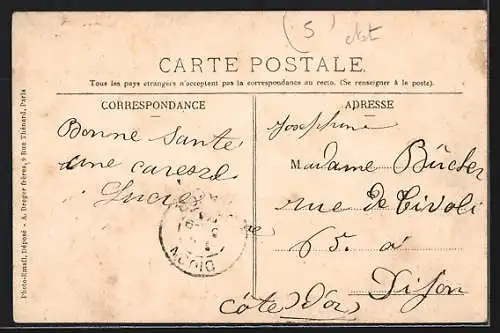 (5)
CARTE POSTALE
Tous les pays étrangers n'acceptent pas la correspondance au recto. (Se renseigner à la poste).
CORRESPONDANCE
Bonne Santé
une caresse
Lucie
ADRESSE
Josephine
Madame Bücher
rue de Tivoli
65. a
Dijon
Côte d'or
DIJON
Photo-Email, Déposé - A. Dreger frères, 9 Rue Thénard, Paris